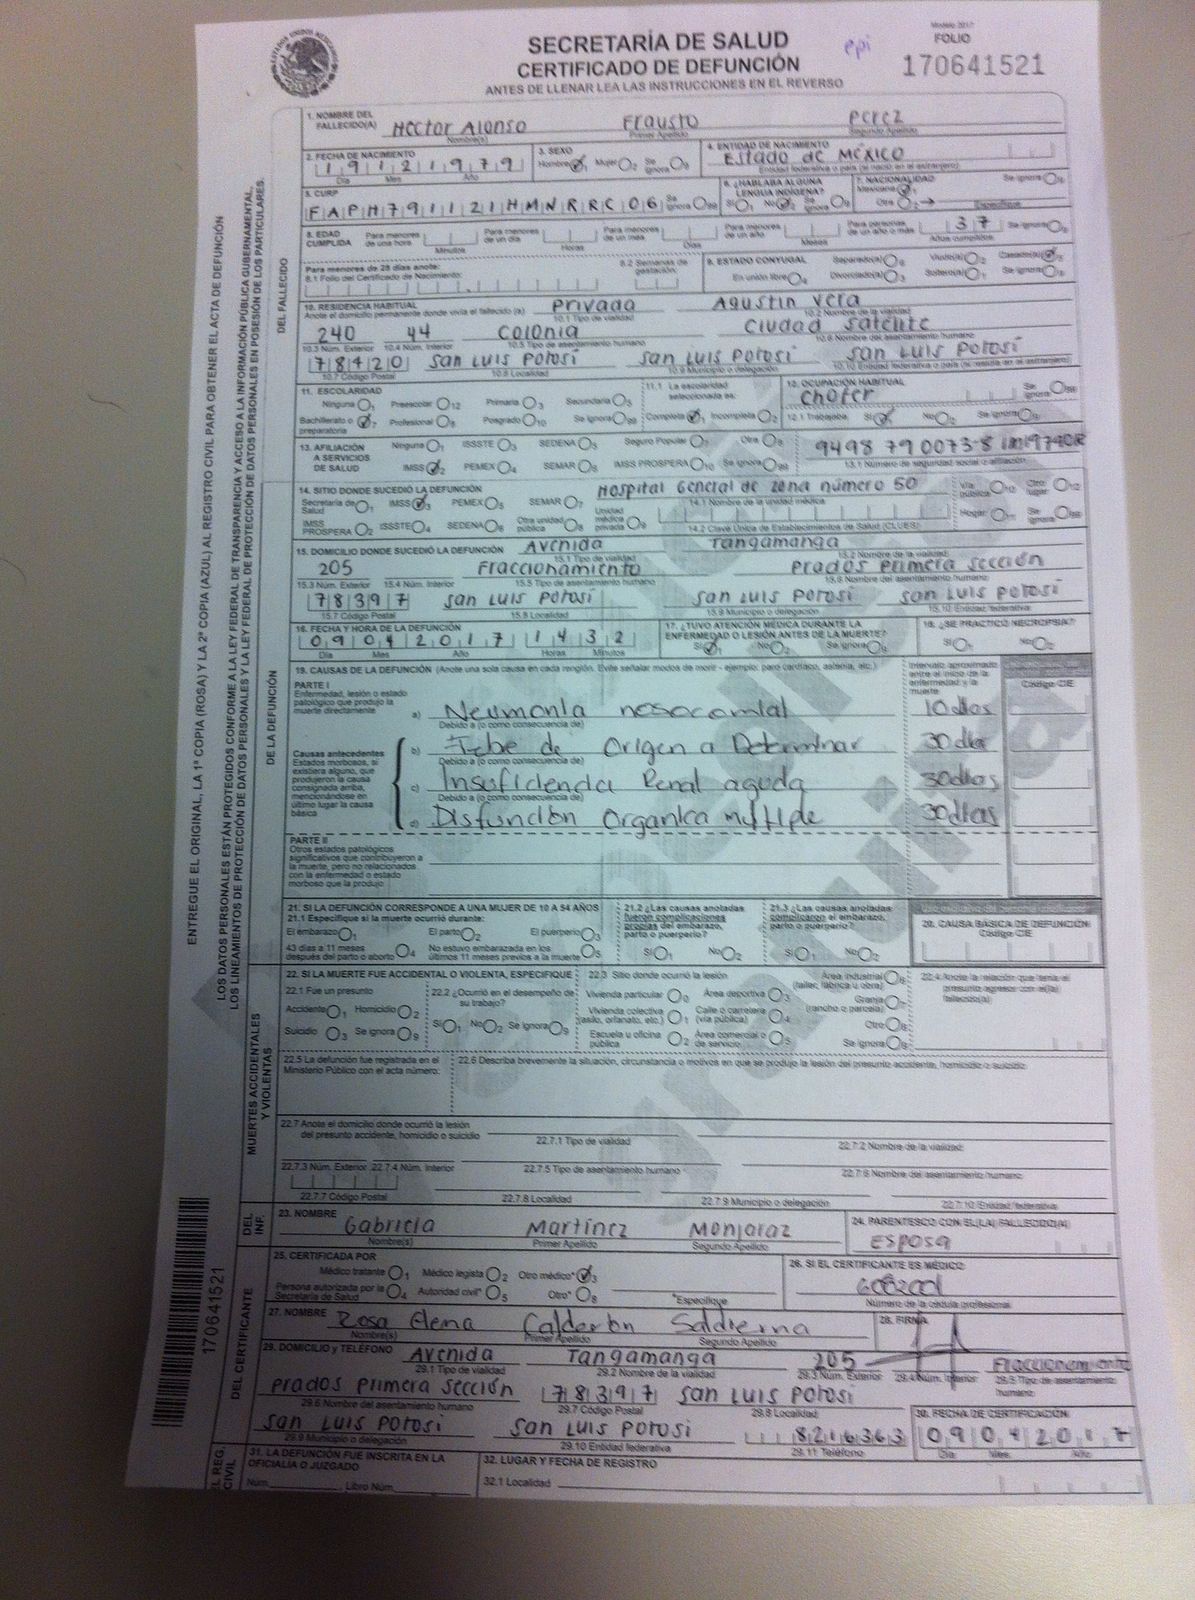 Modelo 2017
SECRETARÍA DE SALUD
CERTIFICADO DE DEFUNCIÓN
ANTES DE LLENAR LEA LAS INSTRUCCIONES EN EL REVERSO
epi
FOLIO
170641521
ENTREGUE EL ORIGINAL, LA 1ª COPIA (ROSA) Y LA 2ª COPIA (AZUL) AL REGISTRO CIVIL PARA OBTENER EL ACTA DE DEFUNCIÓN
LOS DATOS PERSONALES ESTÁN PROTEGIDOS CONFORME A LA LEY FEDERAL DE TRANSPARENCIA Y ACCESO A LA INFORMACIÓN PÚBLICA GUBERNAMENTAL,
LOS LINEAMIENTOS DE PROTECCIÓN DE DATOS PERSONALES Y LA LEY FEDERAL DE PROTECCIÓN DE DATOS PERSONALES EN POSESIÓN DE LOS PARTICULARES.
DEL FALLECIDO
1. NOMBRE DEL FALLECIDO(A) Héctor Alonso Frausto Perez
Nombre(s) Primer Apellido Segundo Apellido
2. FECHA DE NACIMIENTO 3. SEXO 4. ENTIDAD DE NACIMIENTO
19121979 Hombre 1 Mujer 2 Se ignora 9 Estado de México
Día Mes Año Entidad federativa o país (si nació en el extranjero)
5. CURP 6. ¿HABLABA ALGUNA LENGUA INDÍGENA? 7. NACIONALIDAD
FAPH791121HMNRRC06 Se ignora Sí 1 No 2 Se ignora 9 Mexicana 1 Otra 2 Especifique Se ignora 9
8. EDAD CUMPLIDA Para menores de una hora Minutos Para menores de un día Horas Para menores de un mes Días Para menores de un año Meses Para personas de un año o más 37 Años cumplidos Se ignora
Para menores de 28 días anote: 8.2 Semanas de gestación
8.1 Folio del Certificado de Nacimiento
9. ESTADO CONYUGAL Separado(a) 6 Viudo(a) 2 Casado(a) 5
En unión libre 4 Divorciado(a) 3 Soltero(a) 1 Se ignora 9
10. RESIDENCIA HABITUAL Privada Agustin Vera
Anote el domicilio permanente donde vivía el fallecido (a) 10.1 Tipo de vialidad 10.2 Nombre de la vialidad
240 44 Colonia Ciudad Satélite
10.3 Núm. Exterior 10.4 Núm. Interior 10.5 Tipo de asentamiento humano 10.6 Nombre del asentamiento humano
78420 San Luis Potosí San Luis Potosí San Luis Potosí
10.7 Código Postal 10.8 Localidad 10.9 Municipio o delegación 10.10 Entidad federativa o país (si residía en el extranjero)
11. ESCOLARIDAD 11.1 La escolaridad seleccionada es: 12. OCUPACIÓN HABITUAL
Ninguna 1 Preescolar 12 Primaria 3 Secundaria 5 Chofer
Bachillerato o preparatoria 7 Profesional 8 Posgrado 10 Se ignora 99 Completa 1 Incompleta 2 12.1 Trabajaba Sí No Se ignora
13. AFILIACIÓN A SERVICIOS DE SALUD
Ninguna 1 ISSSTE 3 SEDENA 5 Seguro Popular 7 Otra 8
IMSS 2 PEMEX 4 SEMAR 6 IMSS PROSPERA 10 Se ignora 99
9498 79 0073-8 1M1979OR
13.1 Número de seguridad social o afiliación
DE LA DEFUNCIÓN
14. SITIO DONDE SUCEDIÓ LA DEFUNCIÓN Hospital General de zona número 50
Secretaría de Salud 1 IMSS 3 PEMEX 5 SEMAR 7 Unidad médica privada 9 14.1 Nombre de la unidad médica Vía pública 10 Otro lugar 12
IMSS PROSPERA 2 ISSSTE 4 SEDENA 6 Otra unidad pública 8 14.2 Clave Única de Establecimientos de Salud (CLUES) Hogar 11 Se ignora 99
15. DOMICILIO DONDE SUCEDIÓ LA DEFUNCIÓN Avenida Tangamanga
15.1 Tipo de vialidad 15.2 Nombre de la vialidad
205 Fraccionamiento Prados Primera Sección
15.3 Núm. Exterior 15.4 Núm. Interior 15.5 Tipo de asentamiento humano 15.6 Nombre del asentamiento humano
78397 San Luis Potosí San Luis Potosí San Luis Potosí
15.7 Código Postal 15.8 Localidad 15.9 Municipio o delegación 15.10 Entidad federativa
16. FECHA Y HORA DE LA DEFUNCIÓN 17. ¿TUVO ATENCIÓN MÉDICA DURANTE LA ENFERMEDAD O LESIÓN ANTES DE LA MUERTE? 18. ¿SE PRACTICÓ NECROPSIA?
09042017 1432 Sí 1 No 2 Se ignora 9 Sí 1 No 2
Día Mes Año Horas Minutos
19. CAUSAS DE LA DEFUNCIÓN (Anote una sola causa en cada renglón. Evite señalar modos de morir - ejemplo: paro cardiaco, astenia, etc.)
Intervalo aproximado entre el inicio de la enfermedad y la muerte
Código CIE
PARTE I
Enfermedad, lesión o estado patológico que produjo la muerte directamente
a) Neumonia nosocomial 10 dias
Debido a (o como consecuencia de)
Causas antecedentes
Estados morbosos, si existiera alguno, que produjeron la causa consignada arriba, mencionándose en último lugar la causa básica
b) Fiebre de Origen a Determinar 30 dia
Debido a (o como consecuencia de)
c) Insuficiencia Renal aguda 30 dias
Debido a (o como consecuencia de)
d) Disfunción Organica multiple 30 dias
PARTE II
Otros estados patológicos significativos que contribuyeron a la muerte, pero no relacionados con la enfermedad o estado morboso que la produjo
21. SI LA DEFUNCIÓN CORRESPONDE A UNA MUJER DE 10 A 54 AÑOS
21.1 Especifique si la muerte ocurrió durante:
El embarazo 1 El parto 2 El puerperio 3
43 días a 11 meses después del parto o aborto 4 No estuvo embarazada en los últimos 11 meses previos a la muerte 5
21.2 ¿Las causas anotadas fueron complicaciones propias del embarazo, parto o puerperio?
Sí 1 No 2
21.3 ¿Las causas anotadas complicaron el embarazo, parto o puerperio?
Sí 1 No 2
20. CAUSA BÁSICA DE DEFUNCIÓN
Código CIE
MUERTES ACCIDENTALES Y VIOLENTAS
22. SI LA MUERTE FUE ACCIDENTAL O VIOLENTA, ESPECIFIQUE
22.1 Fue un presunto
Accidente 1 Homicidio 2
Suicidio 3 Se ignora 9
22.2 ¿Ocurrió en el desempeño de su trabajo?
Sí 1 No 2 Se ignora 9
22.3 Sitio donde ocurrió la lesión
Vivienda particular 0 Área deportiva 3 Área industrial (taller, fábrica u obra) 6
Vivienda colectiva (asilo, orfanato, etc.) 1 Calle o carretera (vía pública) 4 Granja (rancho o parcela) 7
Escuela u oficina pública 2 Área comercial o de servicio 5 Otro 8
Se ignora 9
22.4 Anote la relación que tenía el presunto agresor con el(la) fallecido(a)
22.5 La defunción fue registrada en el Ministerio Público con el acta número:
22.6 Describa brevemente la situación, circunstancia o motivos en que se produjo la lesión del presunto accidente, homicidio o suicidio
22.7 Anote el domicilio donde ocurrió la lesión del presunto accidente, homicidio o suicidio
22.7.1 Tipo de vialidad 22.7.2 Nombre de la vialidad
22.7.3 Núm. Exterior 22.7.4 Núm. Interior 22.7.5 Tipo de asentamiento humano 22.7.6 Nombre del asentamiento humano
22.7.7 Código Postal 22.7.8 Localidad 22.7.9 Municipio o delegación 22.7.10 Entidad federativa
DEL INF.
23. NOMBRE Gabriela Martínez Monjaraz
Nombre(s) Primer Apellido Segundo Apellido
24. PARENTESCO CON EL(LA) FALLECIDO(A)
Esposa
DEL CERTIFICANTE
25. CERTIFICADA POR
Médico tratante 1 Médico legista 2 Otro médico* 3
Persona autorizada por la Secretaría de Salud 4 Autoridad civil* 5 Otro* 8 *Especifique
26. SI EL CERTIFICANTE ES MÉDICO
Número de la cédula profesional
27. NOMBRE Rosa Elena Calderón Saldierna
Nombre(s) Primer Apellido Segundo Apellido
28. FIRMA
29. DOMICILIO y TELÉFONO Avenida Tangamanga 205 Fraccionamiento
29.1 Tipo de vialidad 29.2 Nombre de la vialidad 29.3 Núm. Exterior 29.4 Núm. Interior 29.5 Tipo de asentamiento humano
Prados Primera Sección 78397 San Luis Potosí
29.6 Nombre del asentamiento humano 29.7 Código Postal 29.8 Localidad
San Luis Potosí San Luis Potosí 8216363
29.9 Municipio o delegación 29.10 Entidad federativa 29.11 Teléfono
30. FECHA DE CERTIFICACIÓN
09042017
Día Mes Año
L REG. CIVIL
31. LA DEFUNCIÓN FUE INSCRITA EN LA OFICIALÍA O JUZGADO
Núm. Libro Núm.
32. LUGAR Y FECHA DE REGISTRO
32.1 Localidad
170641521